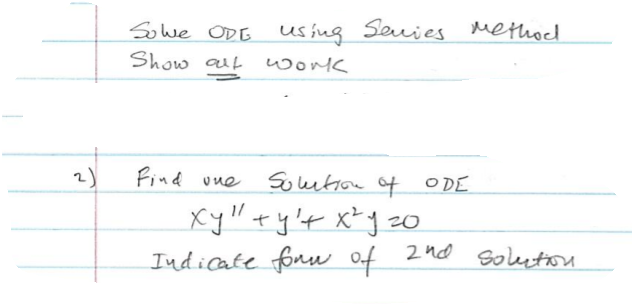 Solve ODE using Series Method
Show all work
2) Find one Solution of ODE
xy'' + y' + x² y = 0
Indicate form of 2nd solution